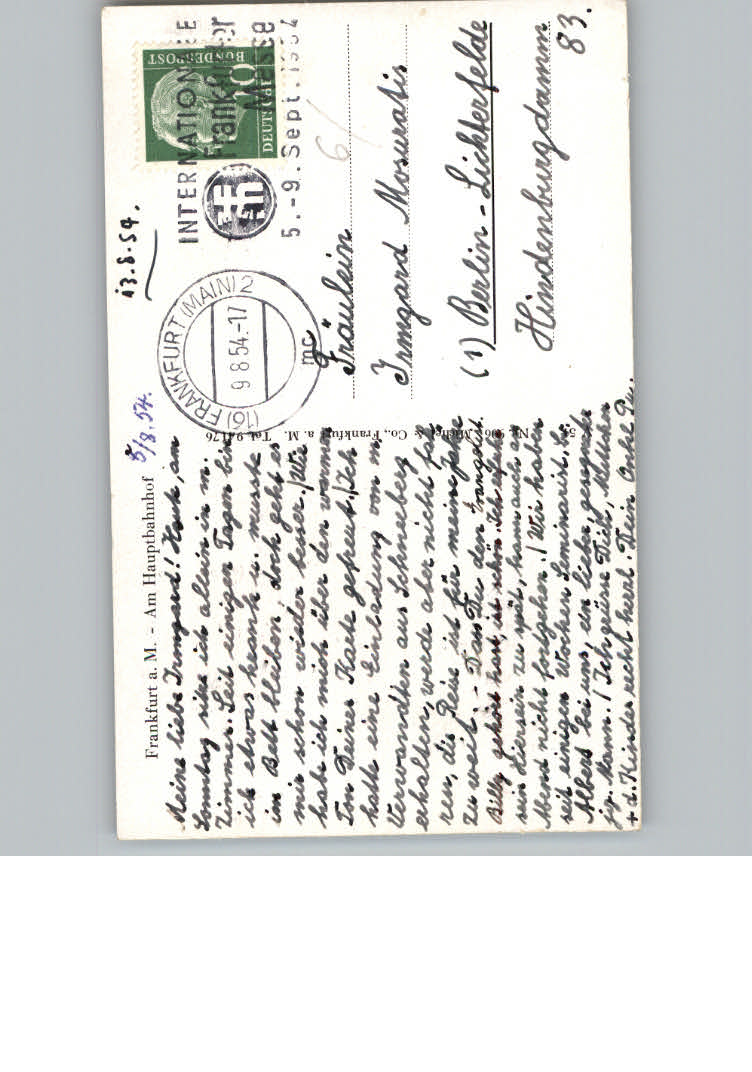 Frankfurt a. M. - Am Hauptbahnhof
5/8. 54.
Meine liebe Irmgard! Heute, am
Sonntag sitze ich allein in m.
Zimmer. Seit einigen Tagen bin
ich etwas krank u. musste
im Bett bleiben, doch geht es
mir schon wieder besser. / Wie
habe ich mich über den warmen
Ton Deiner Karte gefreut. / Ich
hatte eine Einladung von m.
Verwandten aus Schneeberg
erhalten, werde aber nicht fah
ren, die Reise ist für meine
zu weit. - Dass Du den Evangelist.
Billy gehört hast, ist schön. Ich
nun hiervon zu spät, kann auch am
Abend nicht fortgehen. / Wir haben
seit einigen Wochen Seminarist,
Albert bei uns, ein lieber, gesegneter
jg. Mann. / Ich grüsse Dich, Mutter
+ d. Kinder recht herzl. Dein Onkel
Michel & Co., Frankfurt a. M. Tel. 9 41 76
13.8.54.
(16) FRANKFURT (MAIN) 2
9.8.54.-17
mc
INTERNATIONALE
Frankfurter
Messe
5.-9. Sept. 1954
DEUTSCHE
BUNDESPOST
10
6/
Fräulein
Irmgard Mosuratis
(1) Berlin-Lichterfelde
Hindenburgdamm
83.